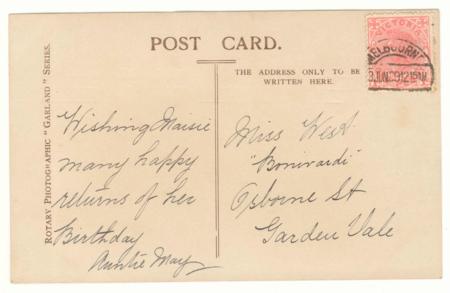 POST CARD.
THE ADDRESS ONLY TO BE
WRITTEN HERE.
ROTARY PHOTOGRAPHIC "GARLAND" SERIES.
VICTORIA
MELBOURNE
Wishing Maisie
many happy
returns of her
Birthday
Auntie May
Miss West
Osborne St
Garden Vale